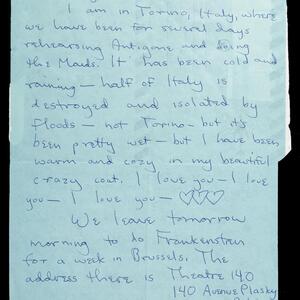 I am in Torino, Italy, where
we have been for several days
rehearsing Antigone and doing
the Maids. It has been cold and
raining — half of Italy is
destroyed and isolated by
floods — not Torino — but it's
been pretty wet — but I have been
warm and cozy in my beautiful
crazy coat. I love you — I love
you — I love you — ♡♡♡
We leave tomorrow
morning to do Frankenstein
for a week in Brussels. The
address there is Theatre 140
140 Avenue Plasky